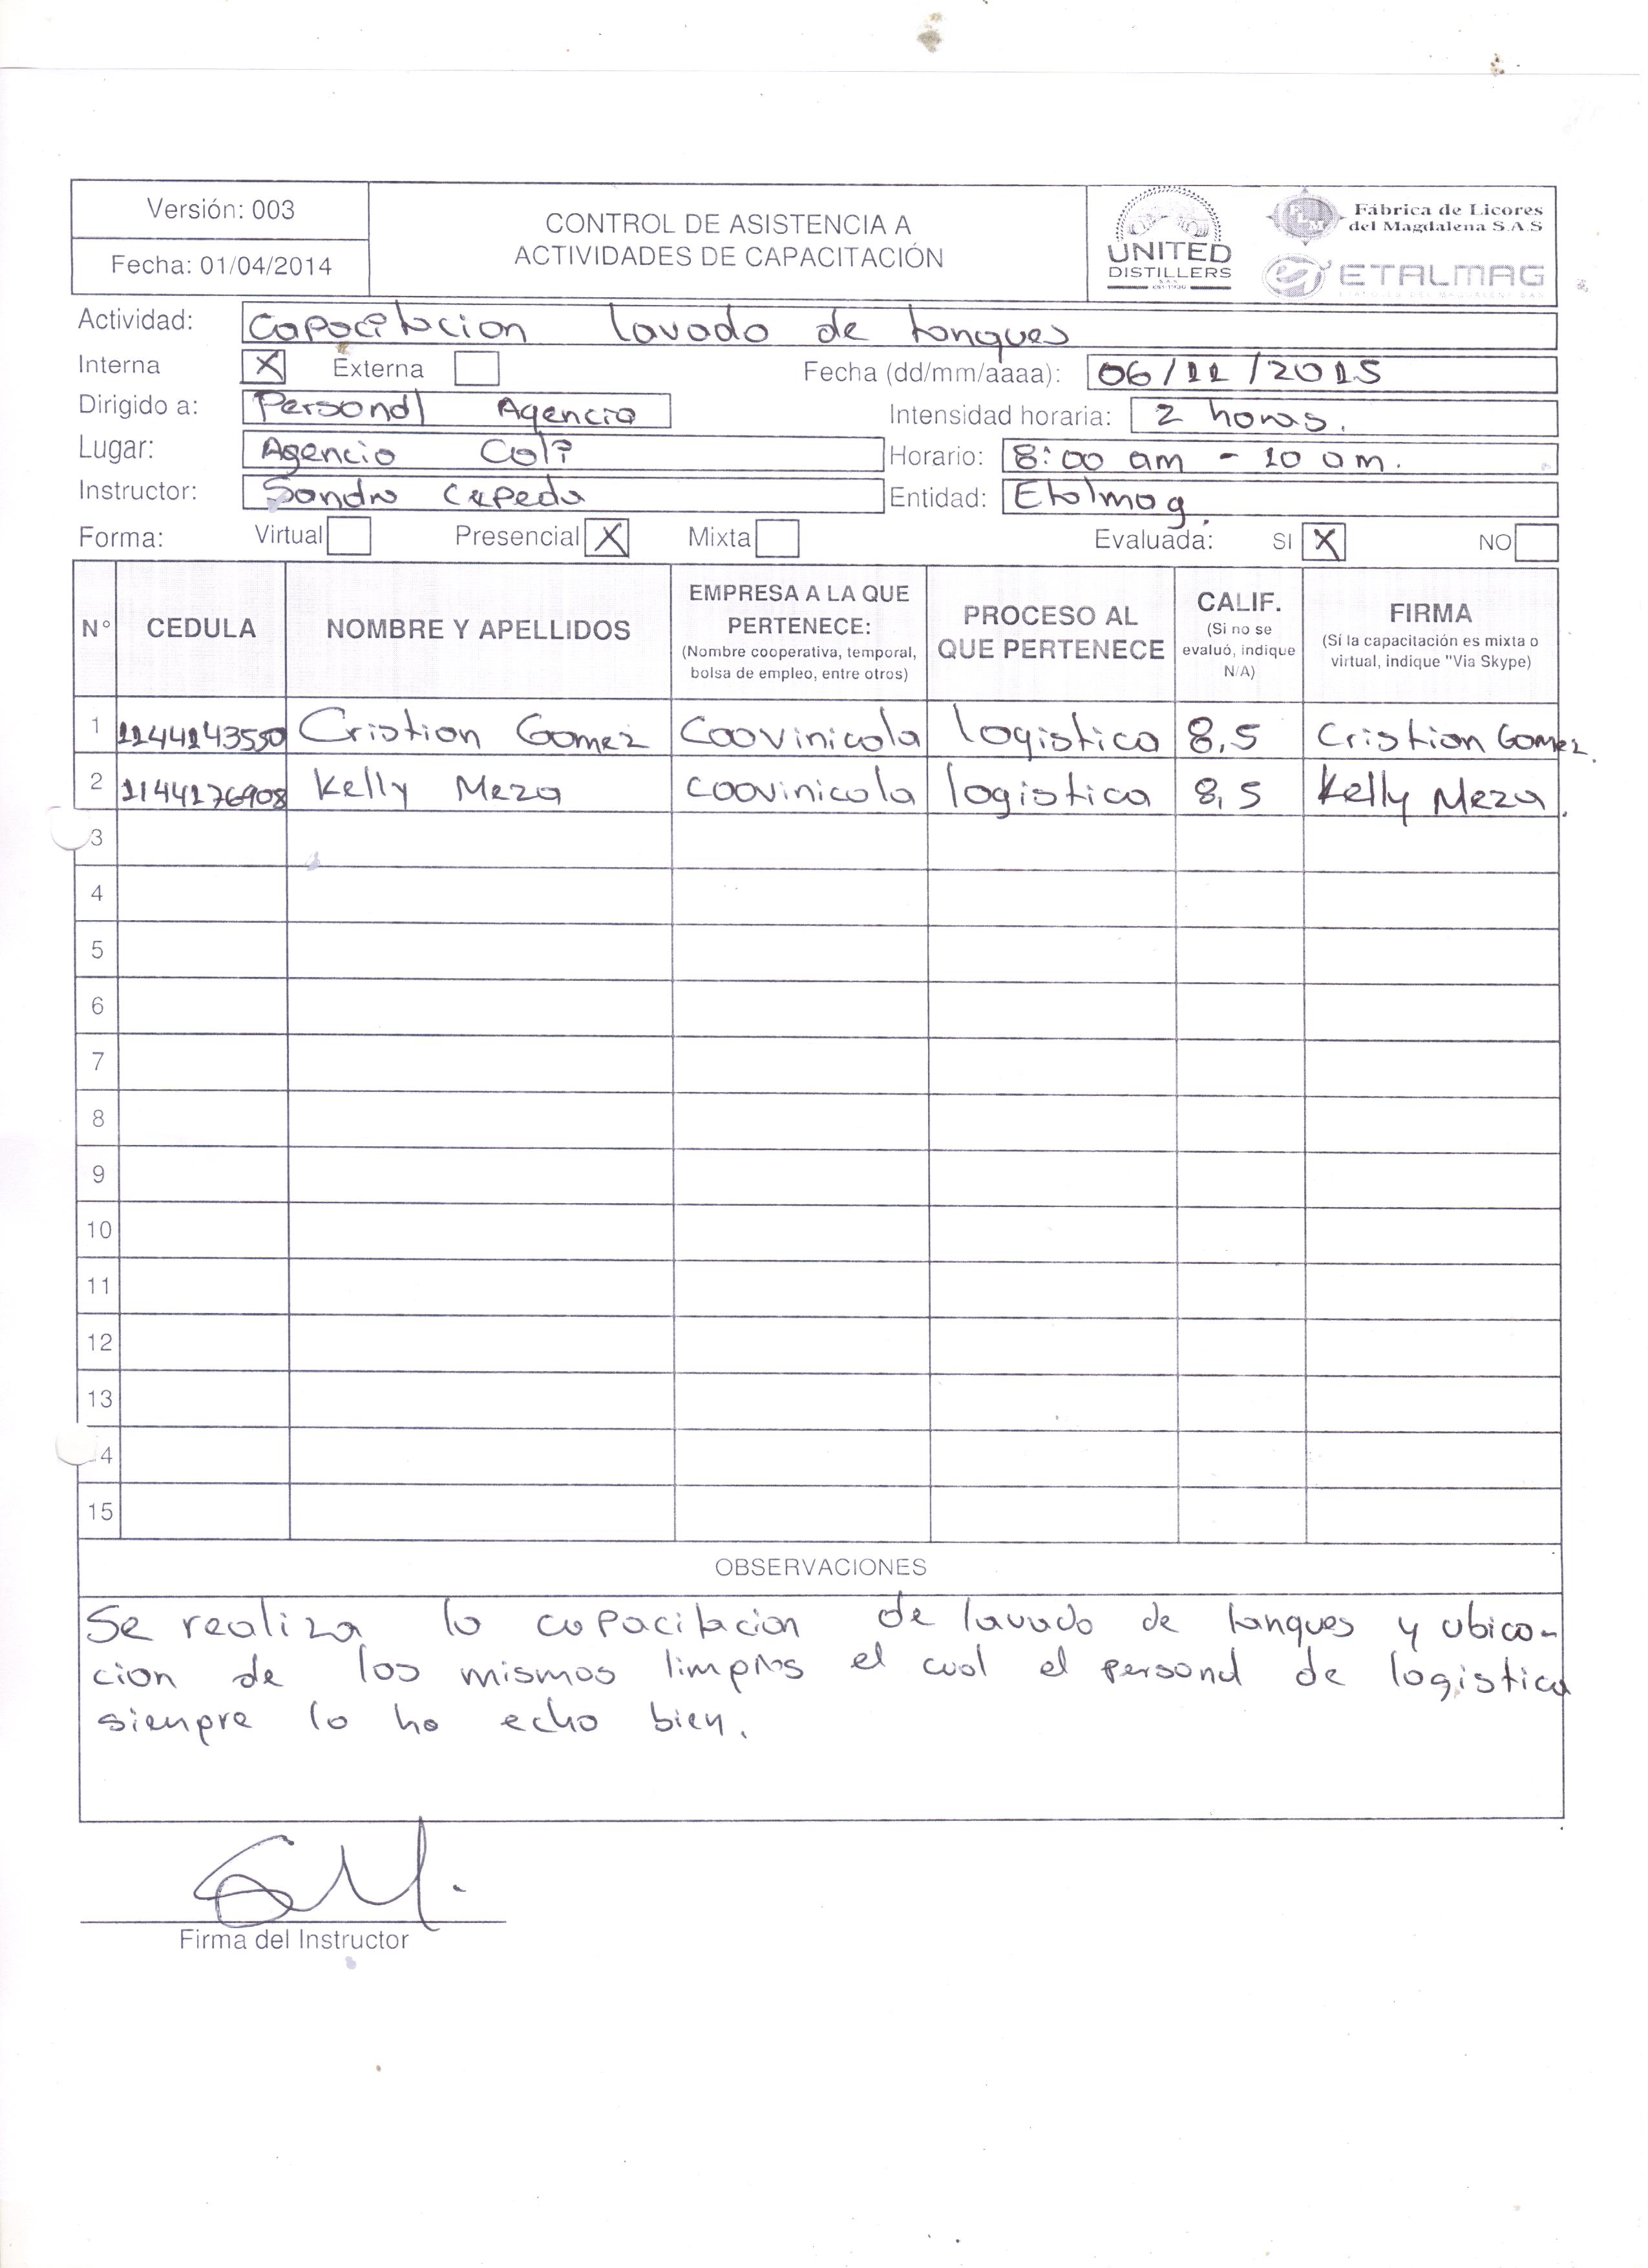 Versión: 003
Fecha: 01/04/2014
CONTROL DE ASISTENCIA A
ACTIVIDADES DE CAPACITACIÓN
UNITED
DISTILLERS
Fábrica de Licores
del Magdalena S.A.S
ETALMAG
Actividad: Capacitacion lavado de tanques
Interna X Externa Fecha (dd/mm/aaaa): 06/11/2015
Dirigido a: Personal Agencia Intensidad horaria: 2 horas.
Lugar: Agencia Cali Horario: 8:00 am - 10 am.
Instructor: Sandra Cepeda Entidad: Etalmag
Forma: Virtual Presencial X Mixta Evaluada: SI X NO
N° CEDULA NOMBRE Y APELLIDOS EMPRESA A LA QUE PERTENECE: (Nombre cooperativa, temporal, bolsa de empleo, entre otros) PROCESO AL QUE PERTENECE CALIF. (Si no se evaluó, indique N/A) FIRMA (Sí la capacitación es mixta o virtual, indique "Via Skype)
1 1144143550 Cristian Gomez Coovinicola logistica 8,5 Cristian Gomez.
2 1144176908 Kelly Meza coovinicola logistica 8,5 Kelly Meza.
3
4
5
6
7
8
9
10
11
12
13
4
15
OBSERVACIONES
Se realiza la capacitacion de lavado de tanques y ubica-
cion de los mismos limpios el cual el personal de logistica
sienpre lo ha echo bien.
Firma del Instructor